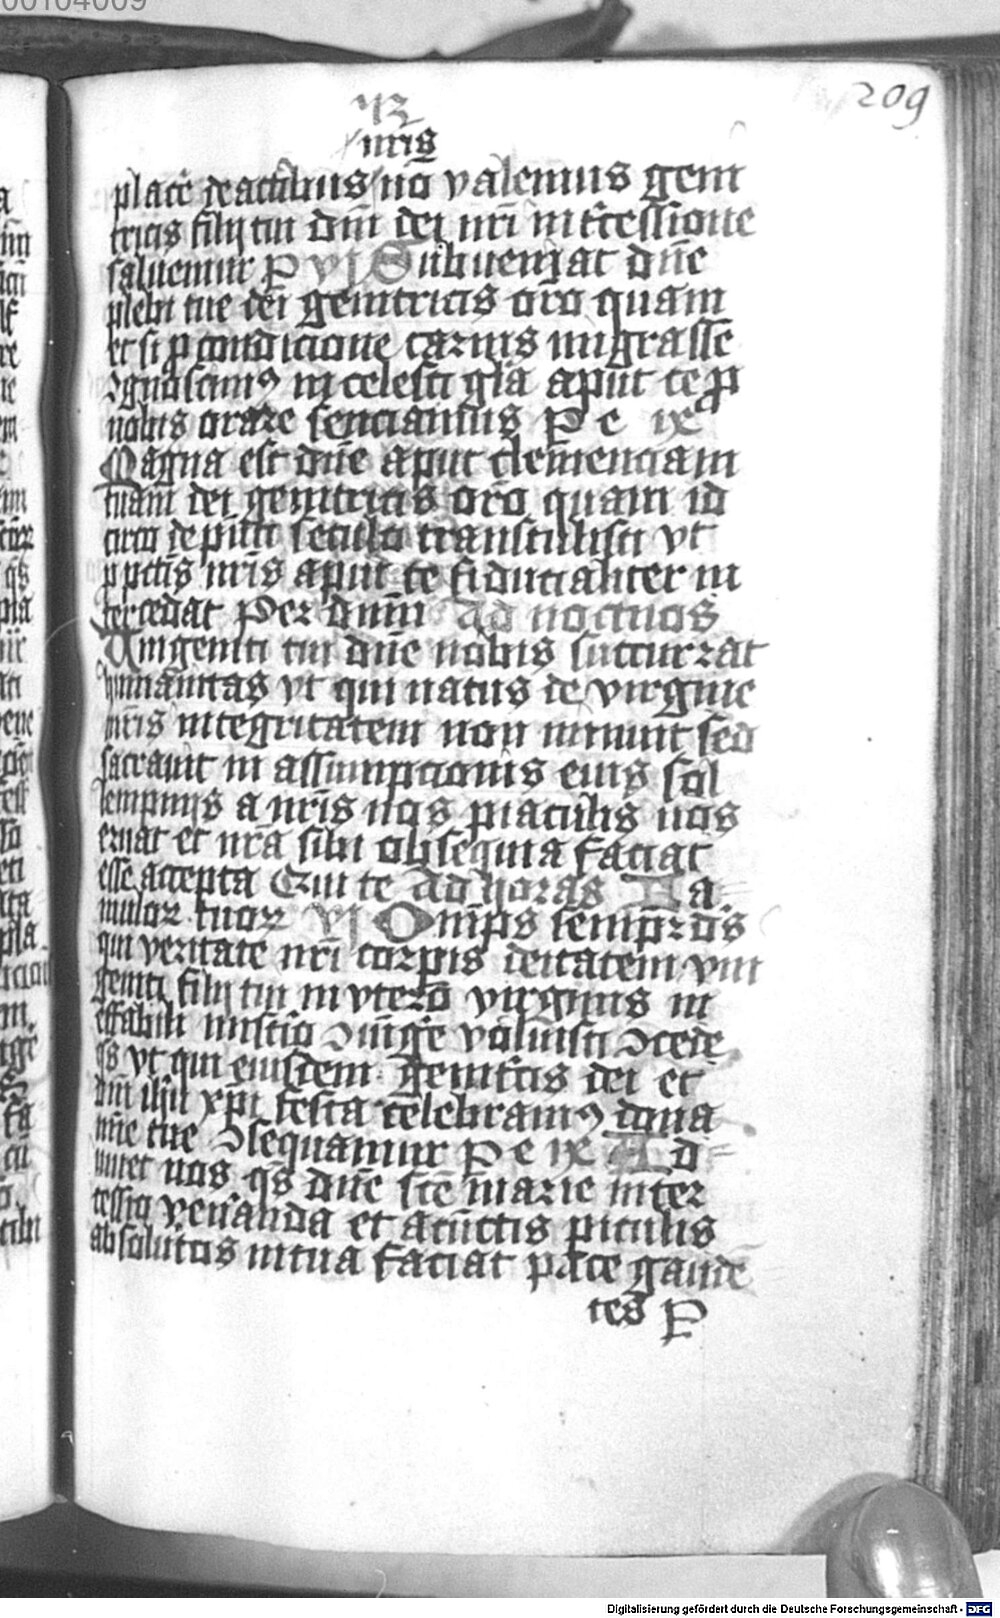 00104009
209
nris
placere de actibus no valemus geni
tricis filij tui dm dei nri intcessione
saluemur P vj Subueniat dne
plebi tue dei genitricis oro quam
et si p condicione carnis migrasse
ɔgnoscimꝯ in celesti gla aput te p
nobis orare senciamus P e ix
Magna est dne aput clemenciam
tuam dei genitricis oro quam id
circo de pnti seculo transtulisti vt
p pctis nris aput te fiducialiter in
tercedat Per dnm Ad noctuos
Unigeniti tui dne nobis succurrat
humanitas vt qui natus de virgine
mris integritatem non minuit sed
sacrauit in assumpcionis eius sol
lempnijs a nris nos piaculis nos
eruat et nra sibi obsequia faciat
esse accepta Qui te Ad horas Fa
mulorꝝ tuorꝝ vj Omps sempr ds
qui veritate nri corpis deitatem vni
geniti filij tui in vtero virginis in
effabili mistio ɔiuge voluisti ɔcede
qs vt qui eiusdem genitcis dei et
dni ihu xpi festa celebramꝯ dona
mie tue ɔsequamur P e ix Ad
iuuet nos qs dne sce marie inter
cessio ven'anda et a cunctis piculis
absolutos in tua faciat pace gaude
tes P
Digitalisierung gefördert durch die Deutsche Forschungsgemeinschaft - DFG